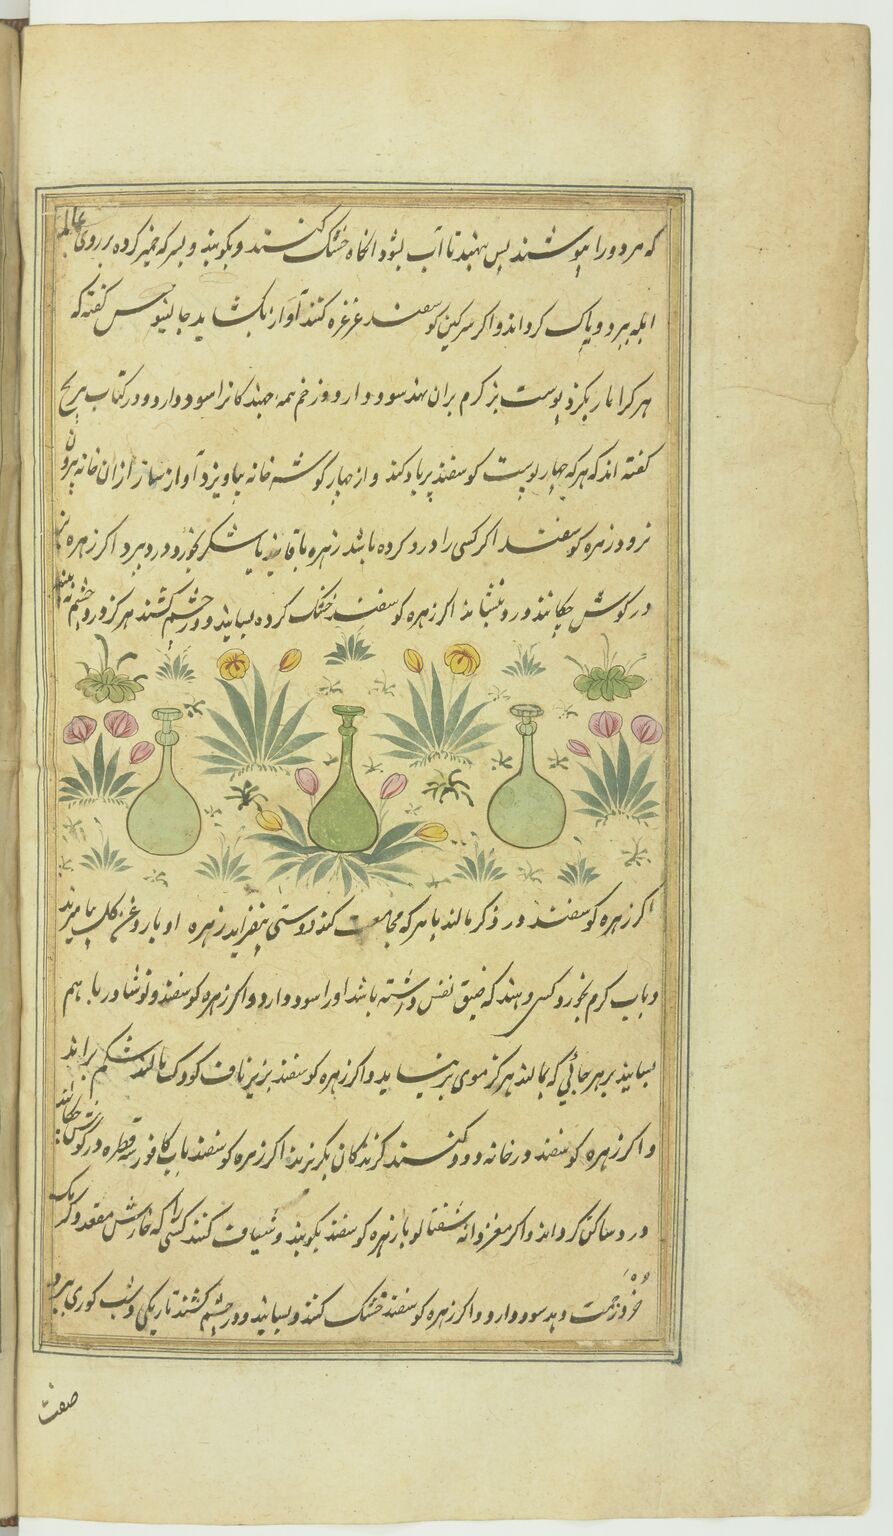 که هر دو را بپوشند پس بنهند تا آب بشود آنکاه خشک کنند و بکوبند و بسرکه خمیر کرده بر روی
ابله ببرد و پاک کرداند و اکر سرکین کوسفند غرغره کنند آواز بکشاید جالینوس کفته که
هر کرا مار بکزد پوست بز کرم بران نهند سود دارد و زخم همه جنبندکانرا سود دارد و در کتاب
کفته اند که هر که چهار پوست کوسفند پر باد کند و از چهار کوشه خانه بیاویزد آواز ساز از ان خانه بیرون
نرود زهره کوسفند اکر کسی را درد کرده باشد زهره با یا شکر بخورد درد ببرد اکر زهره
در کوش چکانند درد بنشاند اکر زهره کوسفند خشک کرده بسایند و در چشم کشند هرکز درد چشم نه بیند
اکر زهره کوسفند در ذکر مالند با هر که مجامعت کند دوستی بیفزاید زهره او با روغن کل بیامیزند
و باب کرم بخورد کسی دهند که ضیق نفس داشته باشد او را سود دارد و اکر زهره کوسفند و نوشادر با هم
بسایند بر هر جائی که بمالند هرکز موی بر نیاید و اکر زهره کوسفند بزیر ناف کودک بمالند شکم براند
و اکر زهره کوسفند در خانه دود کنند کزندکان بکریزند اکر زهره کوسفند باب کافور سه قطره در کوش چکانند
درد ساکن کرداند و اکر مغز دانه شفتالو با زهره کوسفند بکوبند و شیاف کنند کسی را که خارش مقعد و کرمک
زحمت دهد سود دارد و اکر زهره کوسفند خشک کنند و بسایند و در چشم کشند تاریکی و شب کوری ببرد
صفت